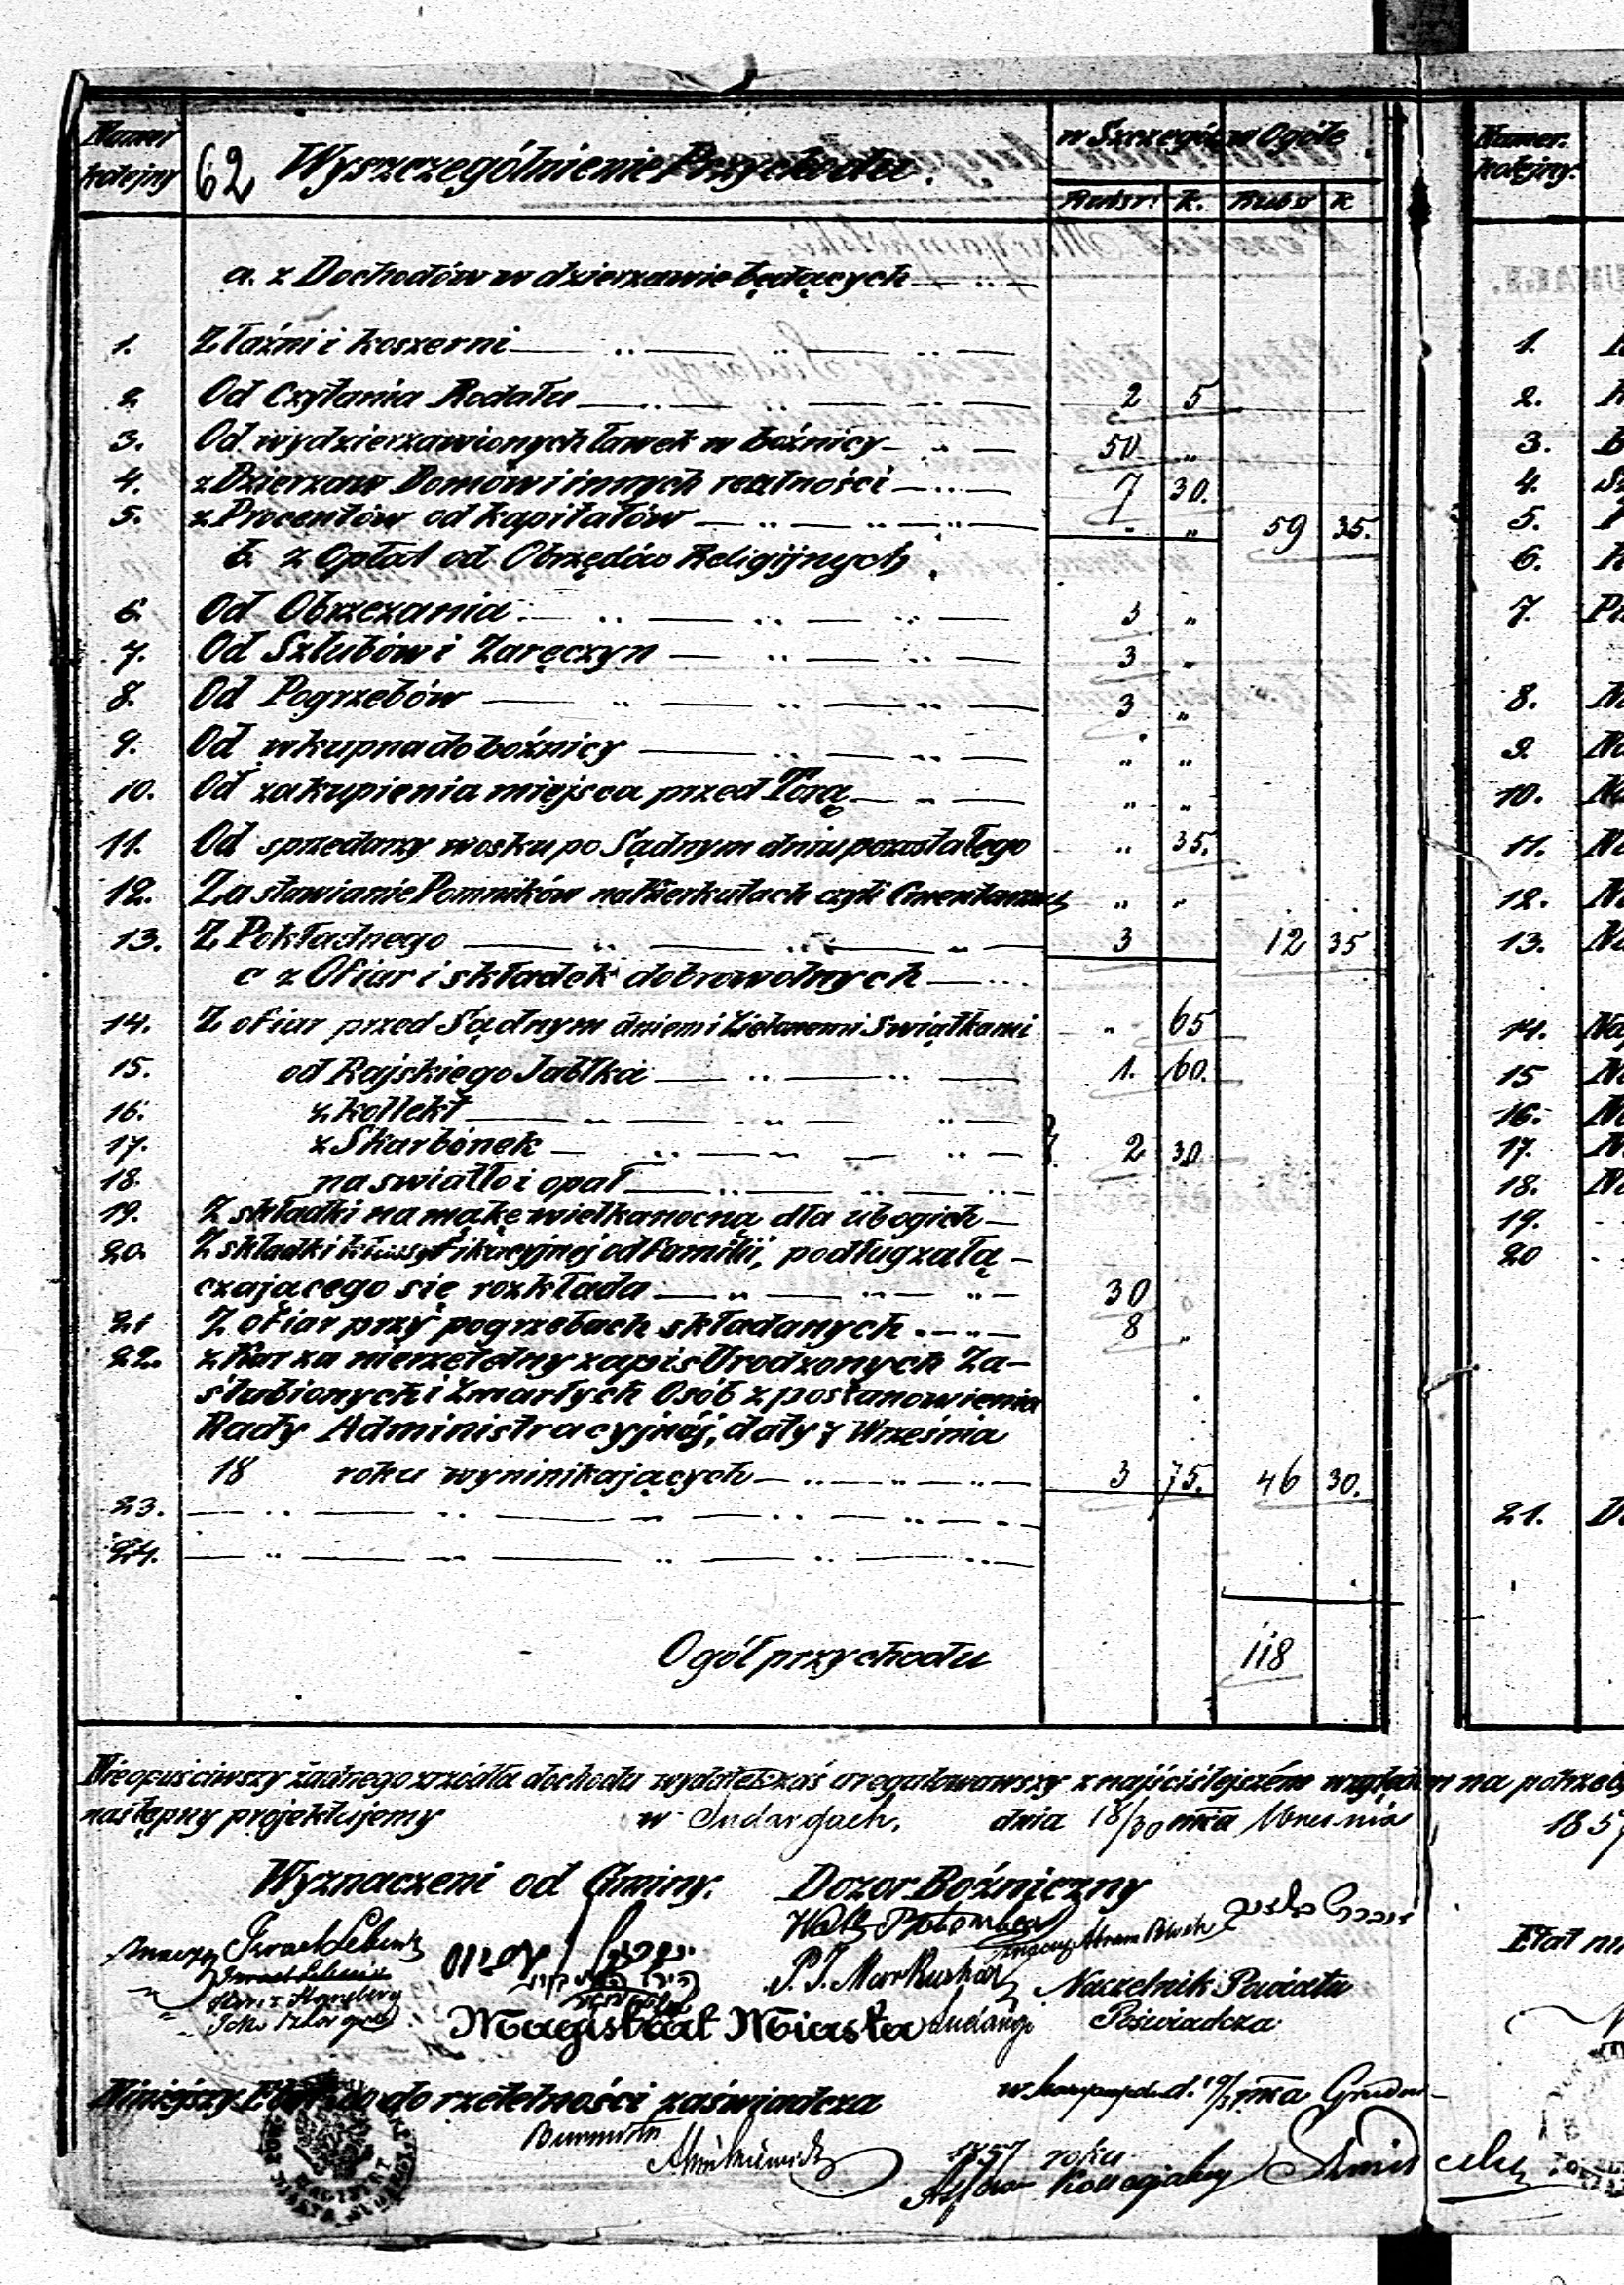 Numer kolejny
62 Wyszczególnienie Przychodu.
w Szczegól. w Ogóle
Rubsr. k. Rubs k
a. z Dochodów w dzierzawie będących
1. Z łaźni i koszerni
2 Od Czytania Rodału 2 5
3. Od wydzierzawionych ławek w boźnicy 50 „
4. z Dzierzaw Domów i innych realności 7 30.
5. z Procentów od kapitałów „ „ 59 35.
b. z Opłat od Obrzędów Religijnych
6 Od Obrzezania 3 „
7. Od Szlubów i Zaręczyn 3 „
8. Od Pogrzebów 3 „
9. Od wkupna do boźnicy „ „
10. Od zakupienia miejsca przed Torą „ „
11. Od sprzedazy wosku po Sądnym dniu pozostałego „ 35.
12. Za stawianie Pomników na Kierkutach czyli Cmentarzu „ „
13. Z Pokładnego 3 12 35
c z Ofiar i składek dobrowolnych
14. Z ofiar przed Sądnym dniem i Zielonemi Swiątkami „ 65
15. od Rajskiego Jabłka 1. 60.
16. z kollekt
17. z Skarbonek 2 30
18. na swiatło i opał
19. Z składki na mąkę wielkanocną dla ubogich
20. Z składki klassyfikacyjnej od familii, podług załą-
czającego się rozkłada 30
21 Z ofiar przy pogrzebach składanych 8 „
22. z Kar za nierzetelny zapis Urodzonych Za-
slubionych i Zmarłych Osób z postanowienia
Rady Administracyjnéj, daty 7 Września
18 roku wyninikających 3 75. 46 30.
23.
24.
Ogół przychodu 118
Nieopuściwszy żadnego zrzódła dochodu wydatek zaś uregulowawszy z najściślejszém względem na potrzeb
następny projektujemy w Sudargach. dnia 18/30 mca Wrzesnia 185
Wyznaczeni od Gminy. Dozor Bożniczny
P. J. Markus
Naczelnik Powiatu
Magistrat Miasta Sudargi Poświadcza
Niniejszy Etat co do rzetelności zaświadcza
Burmistrz
1857 roku
Numer. kolejny.
1.
2.
3.
4.
5.
6.
7.
8.
9.
10.
11.
12.
13.
14.
15
16.
17.
18.
19.
20
21.